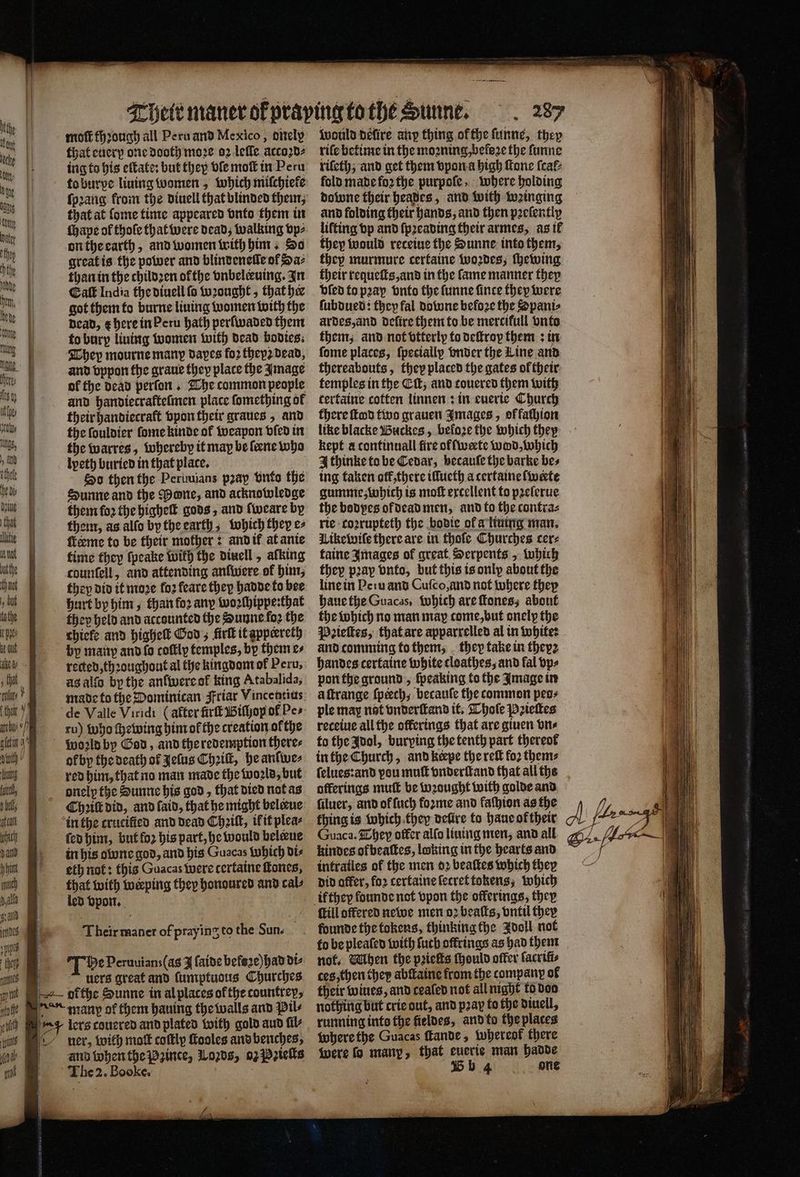 Their maner of praying to the Sunne. 287
most through all Peru and Mexico, onely
that euery one dooth more or lesse accord-
ing to his estate: but they vse most in Peru
to burye liuing women, which mischiefe
sprang from the diuell that blinded them,
that at some time appeared vnto them in
shape of those that were dead, walking vp-
on the earth, and women with him. So
great is the power and blindenesse of Sa-
than in the children of the vnbeleeuing. In
East India the diuell so wrought, that hee
got them to burne liuing women with the
dead, & here in Peru hath perswaded them
to bury liuing women with dead bodies.
They mourne many dayes for theyr dead,
and vppon the graue they place the Image
of the dead person. The common people
and handiecraftesmen place something of
their handiecraft vpon their graues, and
the souldier some kinde of weapon vsed in
the warres, whereby it may be seene who
lyeth buried in that place.
So then the Peruuians pray vnto the
Sunne and the Moone, and acknowledge
them for the highest gods, and sweare by
them, as also by the earth, which they e-
steeme to be their mother: and if at anie
time they speake with the diuell, asking
counsell, and attending answere of him,
they did it more for feare they hadde to bee
hurt by him, than for any worshippe: that
they held and accounted the Sunne for the
chiefe and highest God, first it appeereth
by many and so costly temples, by them e-
rected, throughout al the kingdom of Peru,
as also by the answere of king Atabalida,
made to the Dominican Friar Vincentius
de Valle Viridi (after first Bishop of Pe-
ru) who shewing him of the creation of the
world by God, and the redemption there-
of by the death of Jesus Christ, he answe-
red him, that no man made the world, but
onely the Sunne his god, that died not as
Christ did, and said, that he might beleeue
in the crucified and dead Christ, if it plea-
sed him, but for his part, he would beleeue
in his owne god, and his Guacas which di-
eth not: this Guacas were certaine stones,
that with weeping they honoured and cal-
led vpon.
Their maner of praying to the Sun.
The Peruuians (as I saide before) had di-
uers great and sumptuous Churches
of the Sunne in al places of the countrey,
many of them hauing the walls and Pil-
lers couered and plated with gold aud sil-
uer, with most costly stooles and benches,
and when the Prince, Lords, or Priests
The 2. Booke.
would desire any thing of the sunne, they
rise betime in the morning, before the sunne
riseth, and get them vpon a high stone scaf-
fold made for the purpose, where holding
downe their heades, and with wringing
and folding their hands, and then presently
lifting vp and spreading their armes, as if
they would receiue the Sunne into them,
they murmure certaine wordes, shewing
their requests, and in the same manner they
vsed to pray vnto the sunne since they were
subdued: they fal downe before the Spani-
ardes, and desire them to be mercifull vnto
them, and not vtterly to destroy them: in
some places, specially vnder the Line and
thereabouts, they placed the gates of their
temples in the East, and couered them with
certaine cotten linnen: in euerie Church
there stood two grauen Images, of fashion
like blacke Buckes, before the which they
kept a continuall fire of sweete wood, which
I thinke to be Cedar, because the barke be-
ing taken off, there issueth a certaine sweete
gumme, which is most excellent to preserue
the bodyes of dead men, and to the contra-
rie corrupteth the bodie of a liuing man.
Likewise there are in those Churches cer-
taine Images of great Serpents, which
they pray vnto, but this is only about the
line in Peru and Cusco, and not where they
haue the Guacas, which are stones, about
the which no man may come, but onely the
Priestes, that are apparrelled al in white:
and comming to them, they take in theyr
handes certaine white cloathes, and fal vp-
pon the ground, speaking to the Image in
a strange speech, because the common peo-
ple may not vnderstand it. Those Priestes
receiue all the offerings that are giuen vn-
to the Idol, burying the tenth part thereof
in the Church, and keepe the rest for them-
selues: and you must vnderstand that all the
offerings must be wrought with golde and
siluer, and of such forme and fashion as the
thing is which they desire to haue of their
Guaca. They offer also liuing men, and all
kindes of beastes, looking in the hearts and
intrailes of the men or beastes which they
did offer, for certaine secret tokens, which
if they founde not vpon the offerings, they
still offered newe men or beasts, vntil they
founde the tokens, thinking the Idoll not
to be pleased with such offrings as had them
not. When the priests should offer sacrifi-
ces, then they abstaine from the company of
their wiues, and ceased not all night to doo
nothing but crie out, and pray to the diuell,
running into the fieldes, and to the places
where the Guacas stande, whereof there
were so many, that euerie man hadde
Bb 4 one